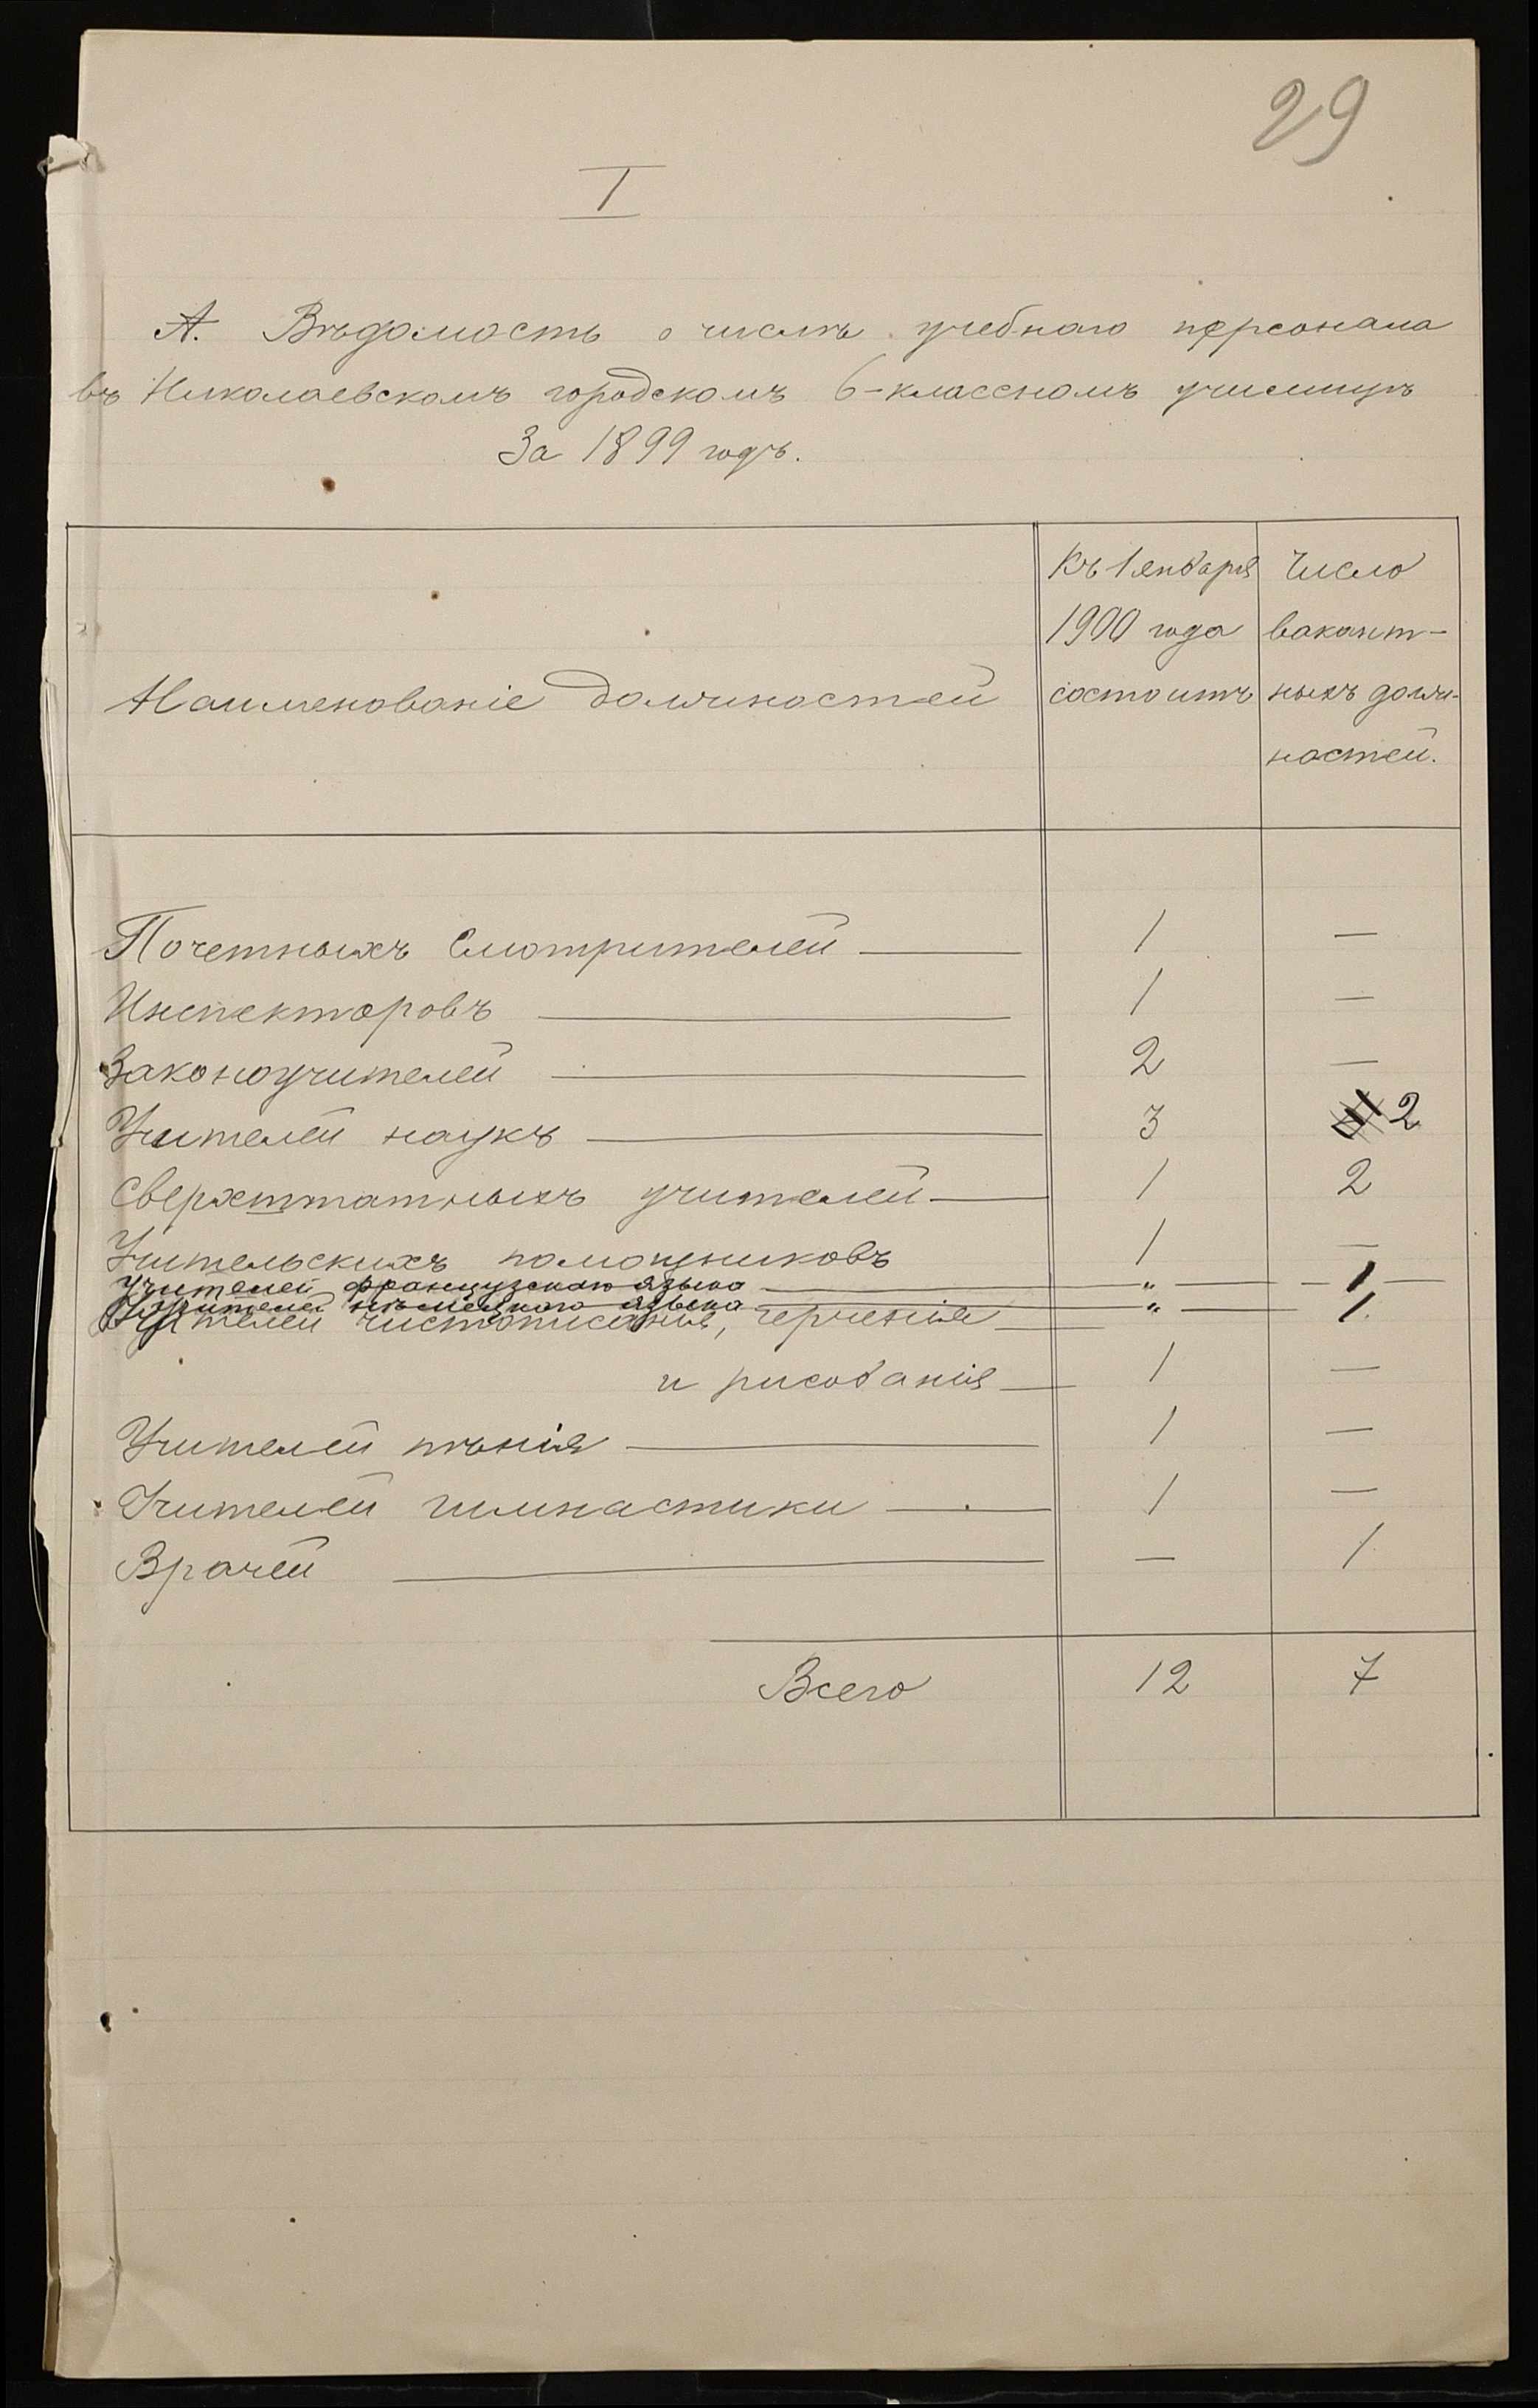 29
I
А. Вѣдомость о числѣ учебнаго персонала
въ Николаевскомъ городскомъ 6-классномъ училищѣ
За 1899 годъ.
Наименованіе должностей
Къ 1 января
1900 года
состоитъ
Число
вакант-
ныхъ долж-
ностей.
Почетныхъ Смотрителей — 1 —
Инспекторовъ — 1 —
Законоучителей — 2 —
Учителей наукъ — 3 2
Сверхштатныхъ учителей — 1 2
Учительскихъ помощниковъ 1 —
Учителей французскаго языка — " — 1 —
Учителей нѣмецкаго языка — " — 1
Учителей чистописанія, черченія —
и рисованія — 1 —
Учителей пѣнія — 1 —
Учителей гимнастики — 1 —
Врачей — — 1
Всего 12 7